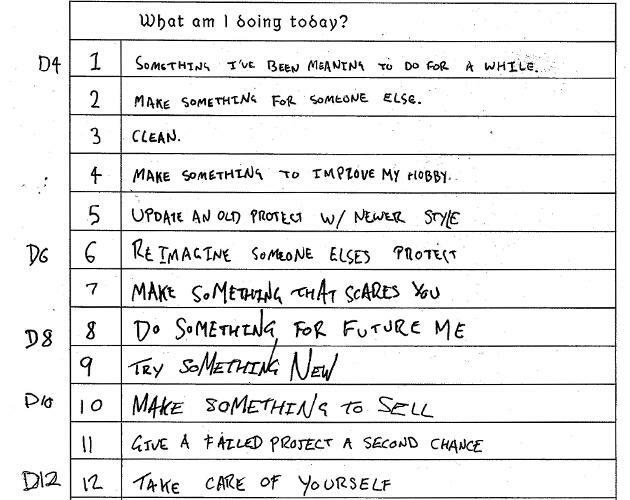 What am I doing today?
D4 1 SOMETHING I'VE BEEN MEANING TO DO FOR A WHILE.
2 MAKE SOMETHING FOR SOMEONE ELSE.
3 CLEAN.
4 MAKE SOMETHING TO IMPROVE MY HOBBY.
5 UPDATE AN OLD PROJECT W/ NEWER STYLE
D6 6 REIMAGINE SOMEONE ELSES PROJECT
7 MAKE SOMETHING THAT SCARES YOU
D8 8 DO SOMETHING FOR FUTURE ME
9 TRY SOMETHING NEW
D10 10 MAKE SOMETHING TO SELL
11 GIVE A FAILED PROJECT A SECOND CHANCE
D12 12 TAKE CARE OF YOURSELF